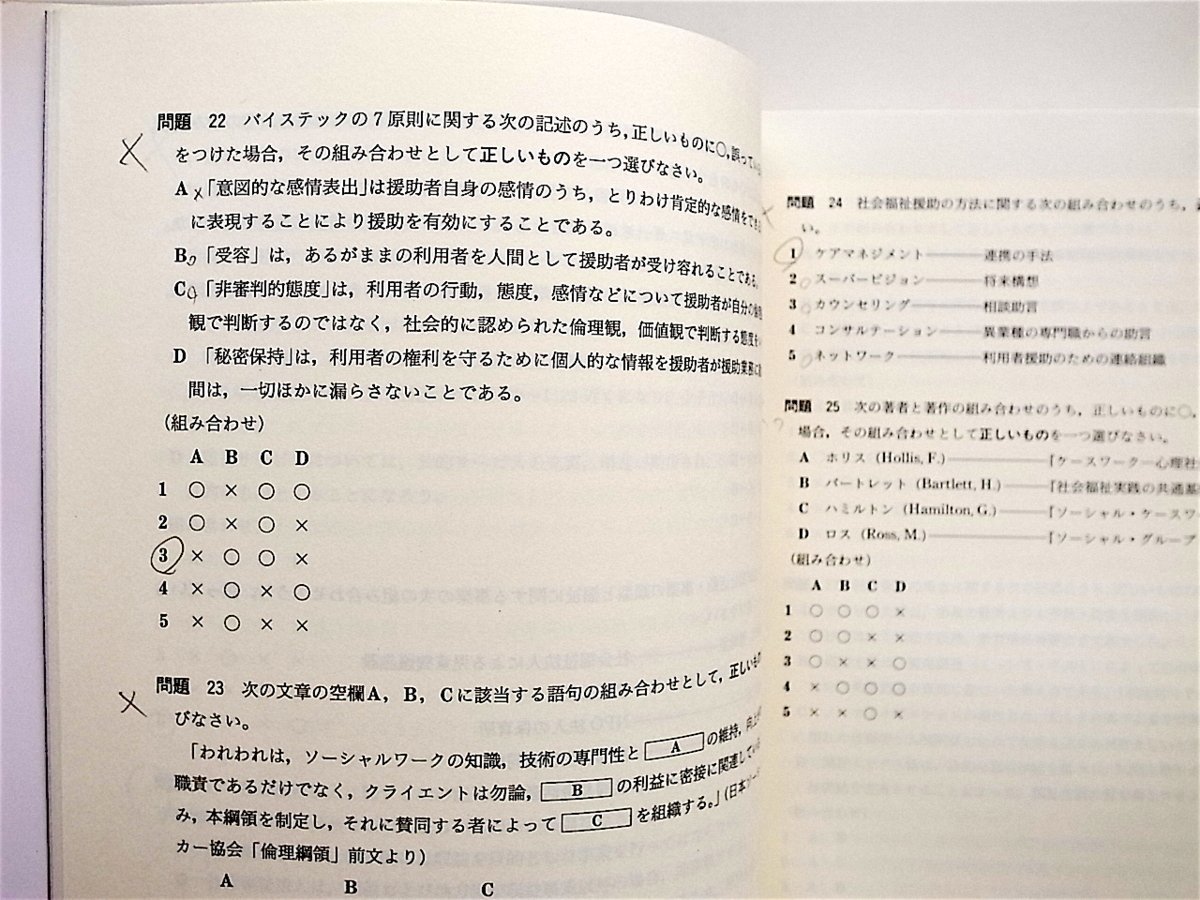 問題 22 バイステックの7原則に関する次の記述のうち,正しいものに○,誤ってい
をつけた場合,その組み合わせとして正しいものを一つ選びなさい。
A 「意図的な感情表出」は援助者自身の感情のうち,とりわけ肯定的な感情を
に表現することにより援助を有効にすることである。
B 「受容」は,あるがままの利用者を人間として援助者が受け容れることである。
C 「非審判的態度」は,利用者の行動,態度,感情などについて援助者が自分の
観で判断するのではなく,社会的に認められた倫理観,価値観で判断する態度
D 「秘密保持」は,利用者の権利を守るために個人的な情報を援助者が援助業務に
間は,一切ほかに漏らさないことである。
(組み合わせ)
A B C D
1 ○ × ○ ○
2 ○ × ○ ×
3 × ○ ○ ×
4 × ○ × ○
5 × ○ × ×
問題 23 次の文章の空欄A,B,Cに該当する語句の組み合わせとして,正しいもの
びなさい。
「われわれは,ソーシャルワークの知識,技術の専門性と A の維持,向上
職責であるだけでなく,クライエントは勿論, B の利益に密接に関連してい
み,本綱領を制定し,それに賛同する者によって C を組織する。」(日本ソー
カー協会「倫理綱領」前文より)
A B C
問題 24 社会福祉援助の方法に関する次の組み合わせのうち,
い。
1 ケアマネジメント―――連携の手法
2 スーパービジョン―――将来構想
3 カウンセリング―――相談助言
4 コンサルテーション―――異業種の専門職からの助言
5 ネットワーク―――利用者援助のための連絡組織
問題 25 次の著者と著作の組み合わせのうち,正しいものに○,
場合,その組み合わせとして正しいものを一つ選びなさい。
A ホリス (Hollis, F.)―――『ケースワーク―心理社
B バートレット (Bartlett, H.)―――『社会福祉実践の共通基
C ハミルトン (Hamilton, G.)―――『ソーシャル・ケースワ
D ロス (Ross, M.)―――『ソーシャル・グループ
(組み合わせ)
A B C D
1 ○ ○ ○ ×
2 ○ ○ × ×
3 ○ × × ○
4 × ○ ○ ○
5 × × ○ ×